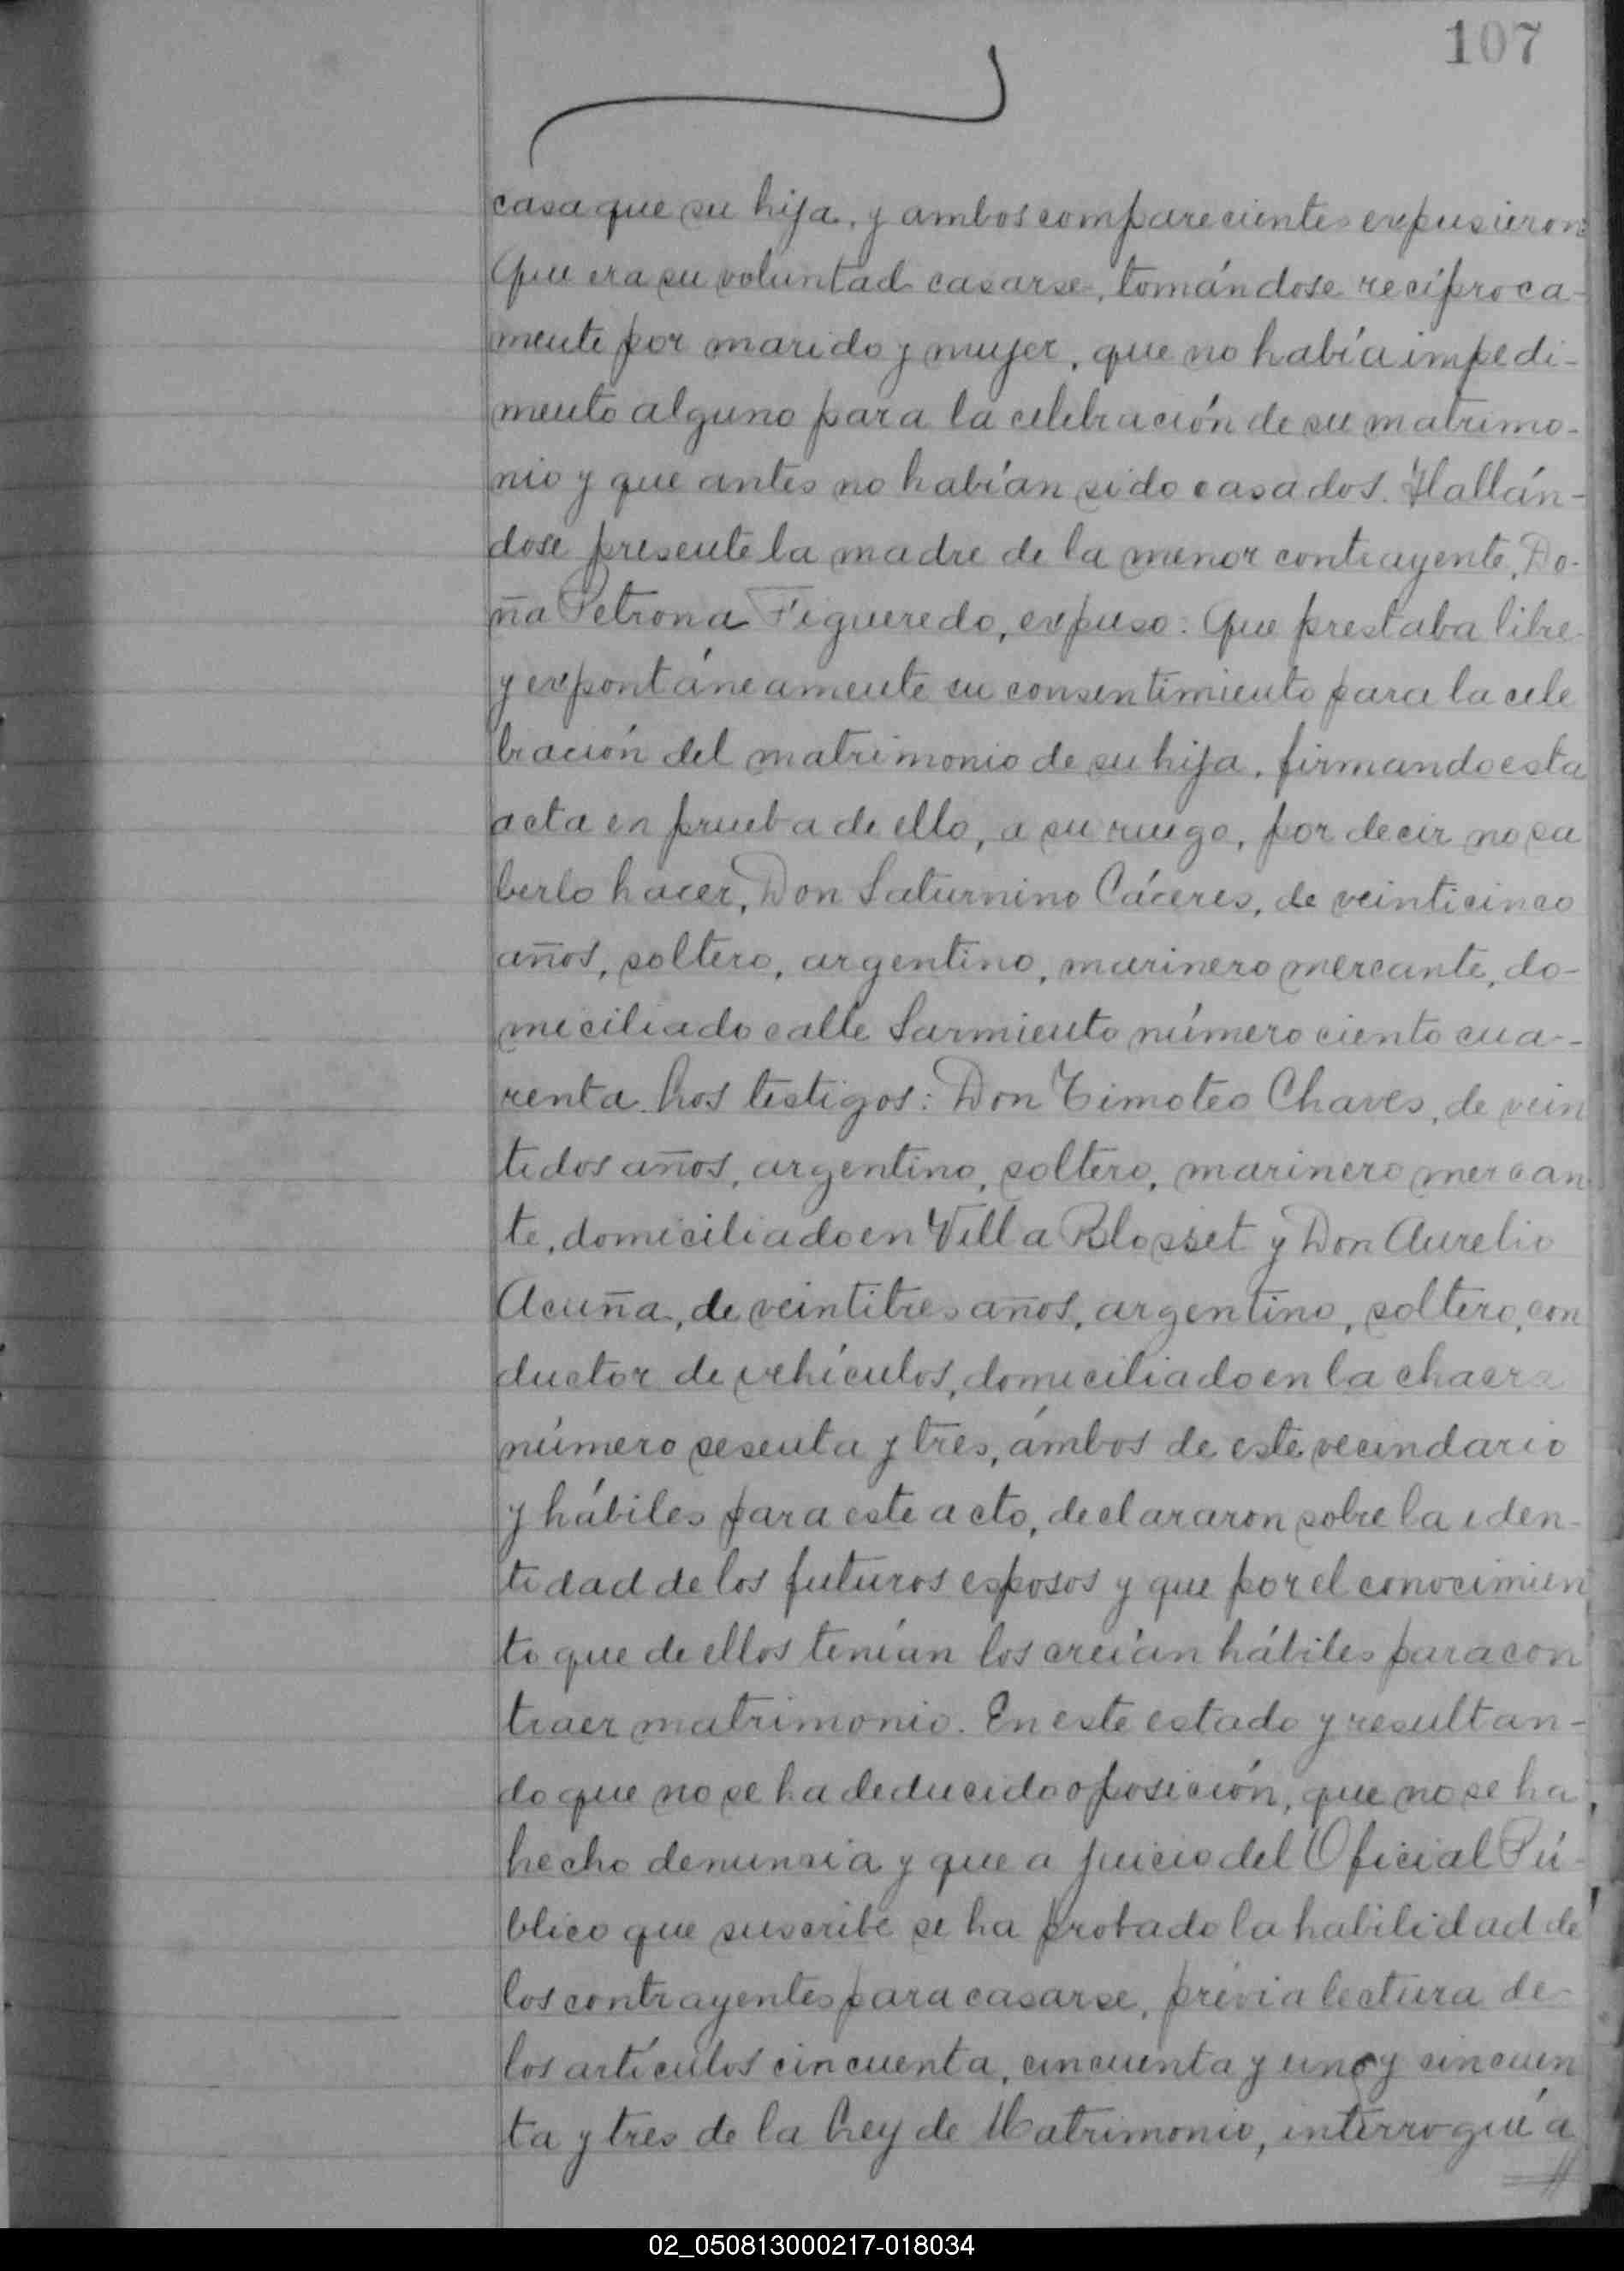 107
casa que su hija, y ambos comparecientes expusieron:
Que era su voluntad casarse, tomándose recíproca-
mente por marido y mujer, que no había impedi-
mento alguno para la celebración de su matrimo-
nio y que antes no habían sido casados. Hallán-
dose presente la madre de la menor contrayente, Do-
ña Petrona Figueredo, expuso: Que prestaba libre
y expontáneamente su consentimiento para la cele
bración del matrimonio de su hija, firmando esta
acta en prueba de ello, a su ruego, por decir no sa
berlo hacer, Don Saturnino Cáceres, de veinticinco
años, soltero, argentino, marinero mercante, do-
miciliado calle Sarmiento número ciento cua-
renta. Los testigos: Don Timoteo Chaves, de vein
tidos años, argentino, soltero, marinero mercan
te, domiciliado en Villa Blosset y Don Aurelio
Acuña, de veintitres años, argentino, soltero, con
ductor de vehículos, domiciliado en la chacra
número sesenta y tres, ámbos de este vecindario
y hábiles para este acto, declararon sobre la iden-
tidad de los futuros esposos y que por el conocimien
to que de ellos tenían los creían hábiles para con
traer matrimonio. En este estado y resultan-
do que no se ha deducido oposición, que no se ha
hecho denuncia y que a juicio del Oficial Pú-
blico que suscribe se ha probado la habilidad de
los contrayentes para casarse, prévia lectura de
los artículos cincuenta, cincuenta y uno y cincuen
ta y tres de la Ley de Matrimonio, interrogué a
02_050813000217-018034